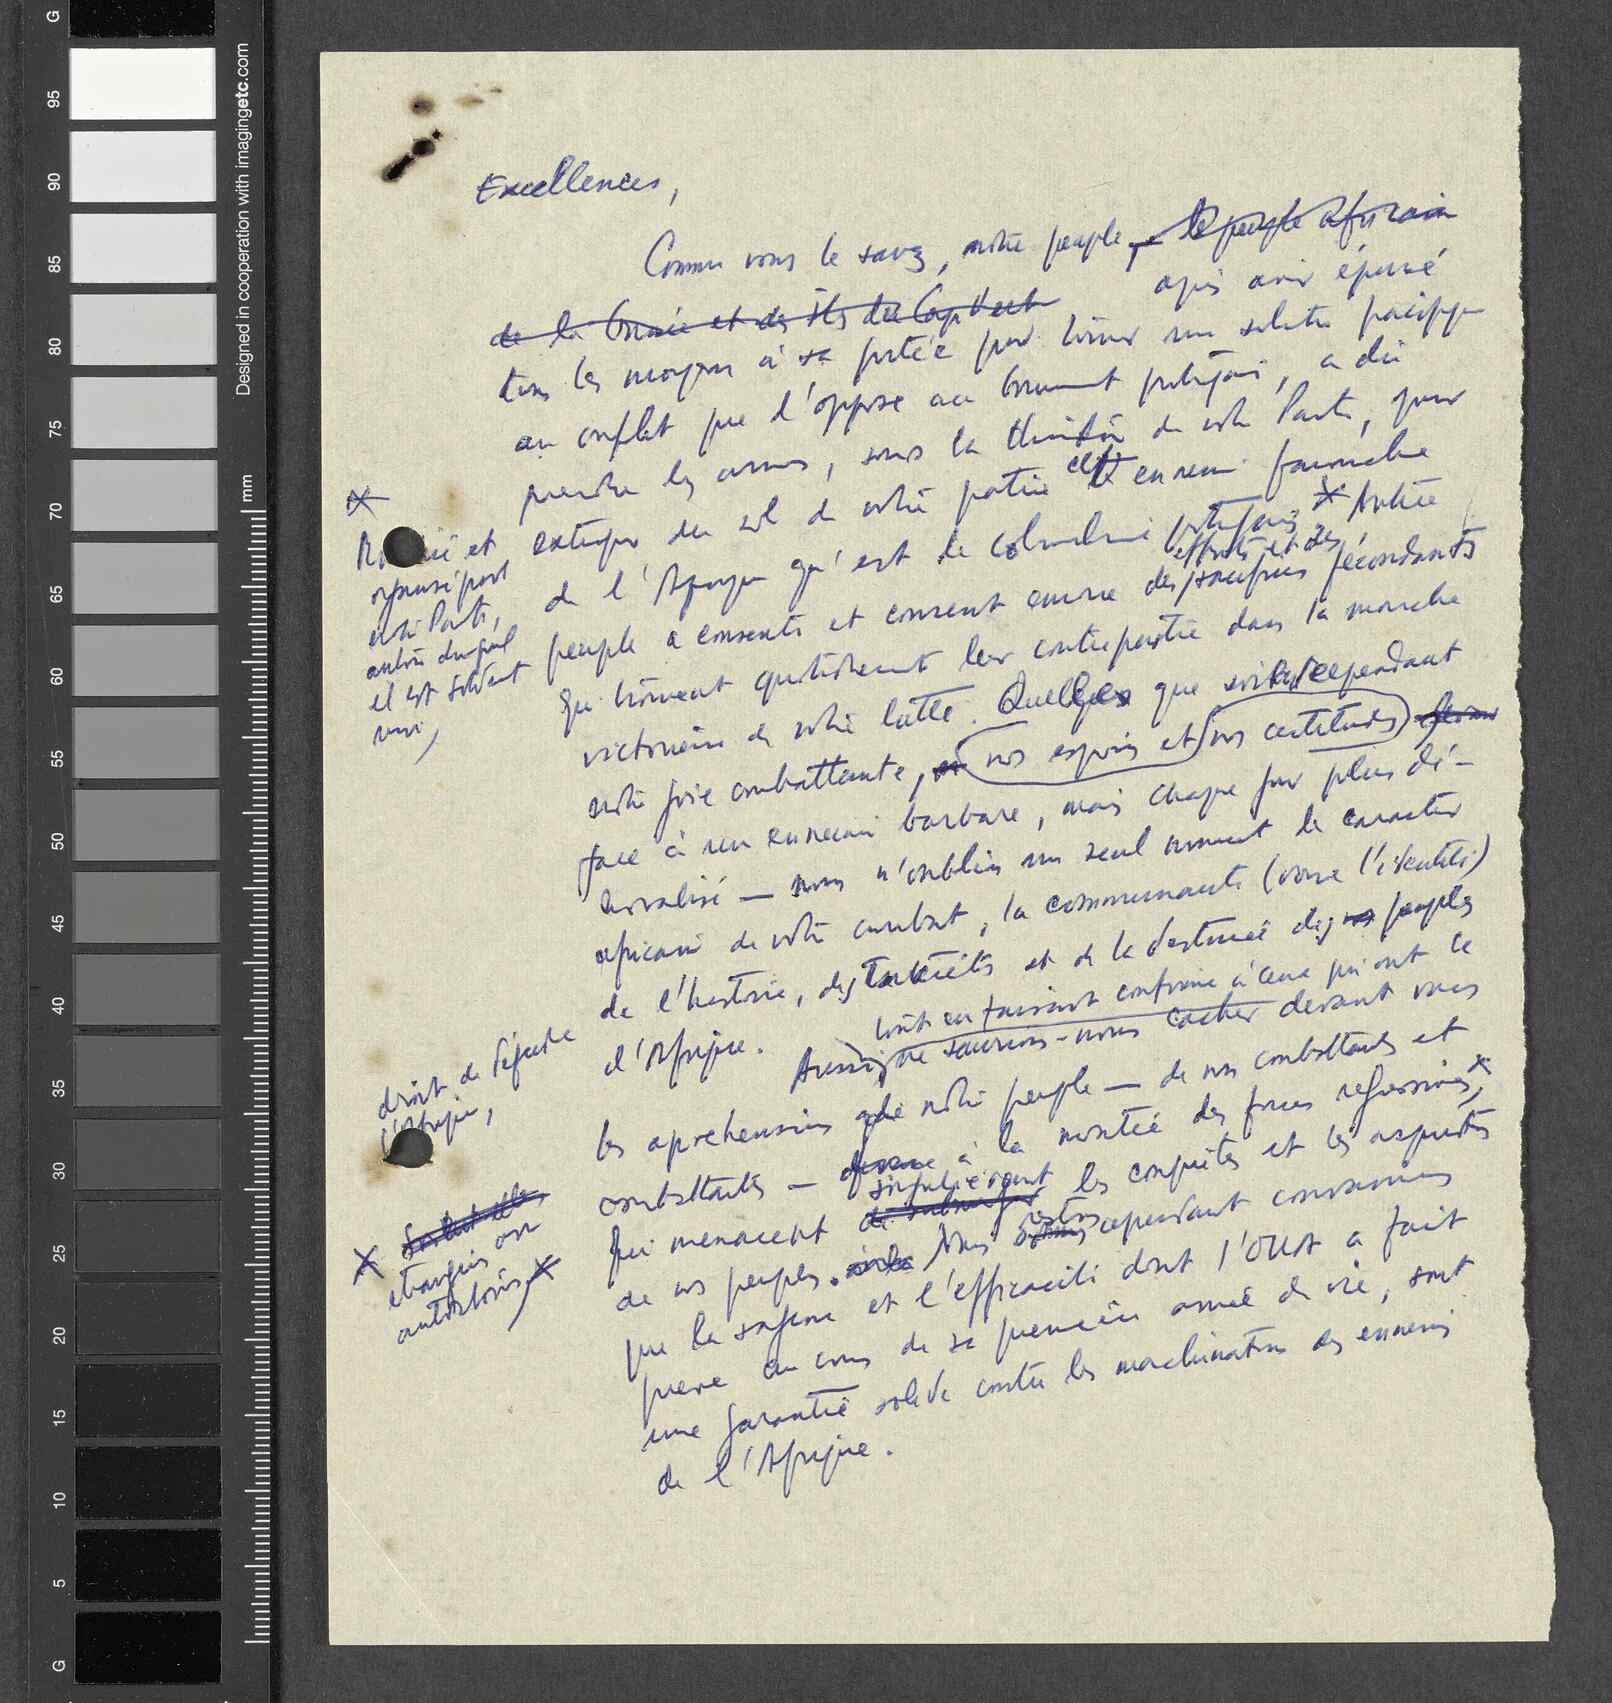 Excellences,
Comme vous le savez, notre peuple, le peuple africain
de la Guinée et des îles du Cap Vert après avoir épuisé
tous les moyens à sa portée pour trouver une solution pacifique
au conflit que l'oppose au Gouvernement portugais, a dû
prendre les armes, sous la direction de notre Parti, pour
extirper du sol de notre patrie cet ennemi farouche
de l'Afrique qu'est le colonialisme portugais X Notre
X
et
organisé par
notre Parti,
autour duquel
il est
uni,
efforts et des
peuple a consenti et consent encore des sacrifices fécondants
qui trouvent quotidiennement leur contrepartie dans la marche
victorieuse de notre lutte. Quelles que soient cependant
notre foi combattante, nos espoirs et nos certitudes
face à un ennemi barbare, mais chaque jour plus dé-
moralisé — nous n'oublions un seul moment le caractère
africain de notre combat, la communauté (voire l'identité)
de l'histoire, des intérêts et de la destinée des peuples
d'Afrique.
tout en faisant confiance à ceux qui ont le
droit de défendre
l'Afrique,
Aussi, ne saurions-nous cacher devant vous
les apréhensions de notre peuple — de nos combattants et
combattantes — à la montée des forces
X
étrangères ou
X
qui menacent les conquêtes et les
de nos peuples. Nous restons cependant convaincus
que la sagesse et l'efficacité dont l'OUA a fait
preuve au cours de sa première année de vie, sont
une garantie solide contre les machinations des ennemis
de l'Afrique.
G
95
90
85
80
75
70
65
60
55
50
45
40
35
30
25
20
15
10
5
G
mm
Designed in cooperation with imagingetc.com